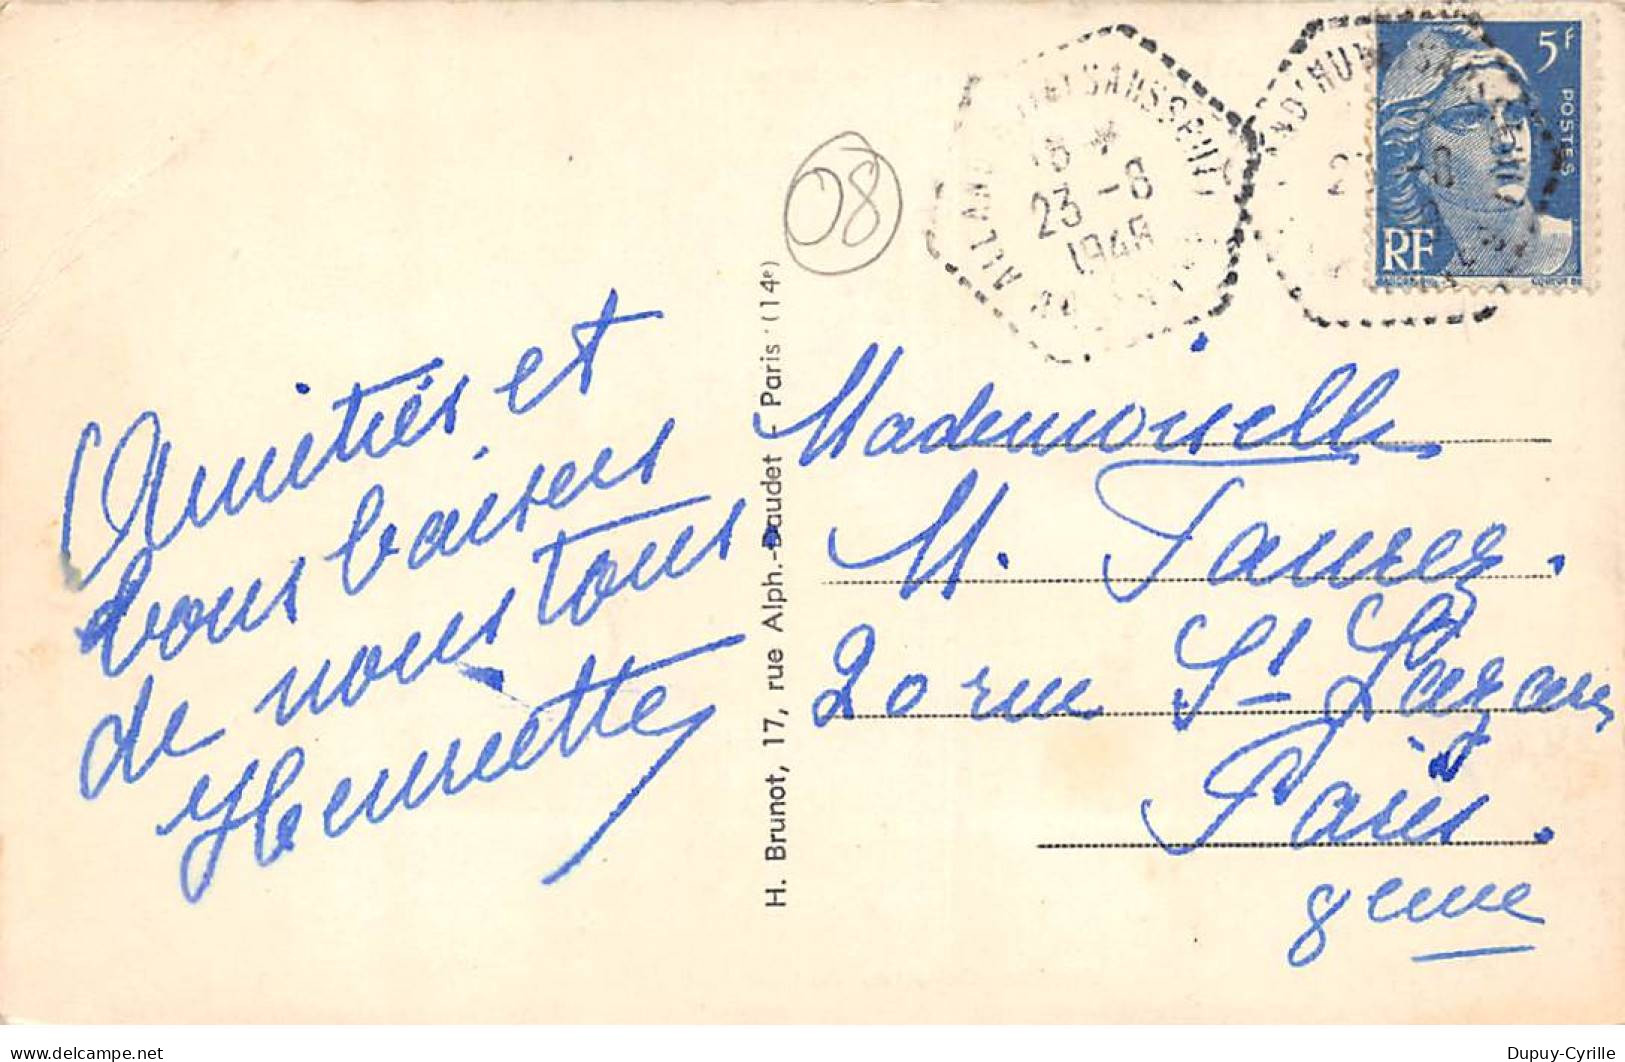 Amitiés et
bons baisers
de nous tous
Henriette
H. Brunot, 17, rue Alph.-Daudet - Paris (14e)
08
18 *
23 -8
1948
5F
POSTES
RF
Mademoiselle
M. Taurez.
20 rue St Lazare
Paris.
8eme
delcampe.net
Dupuy-Cyrille